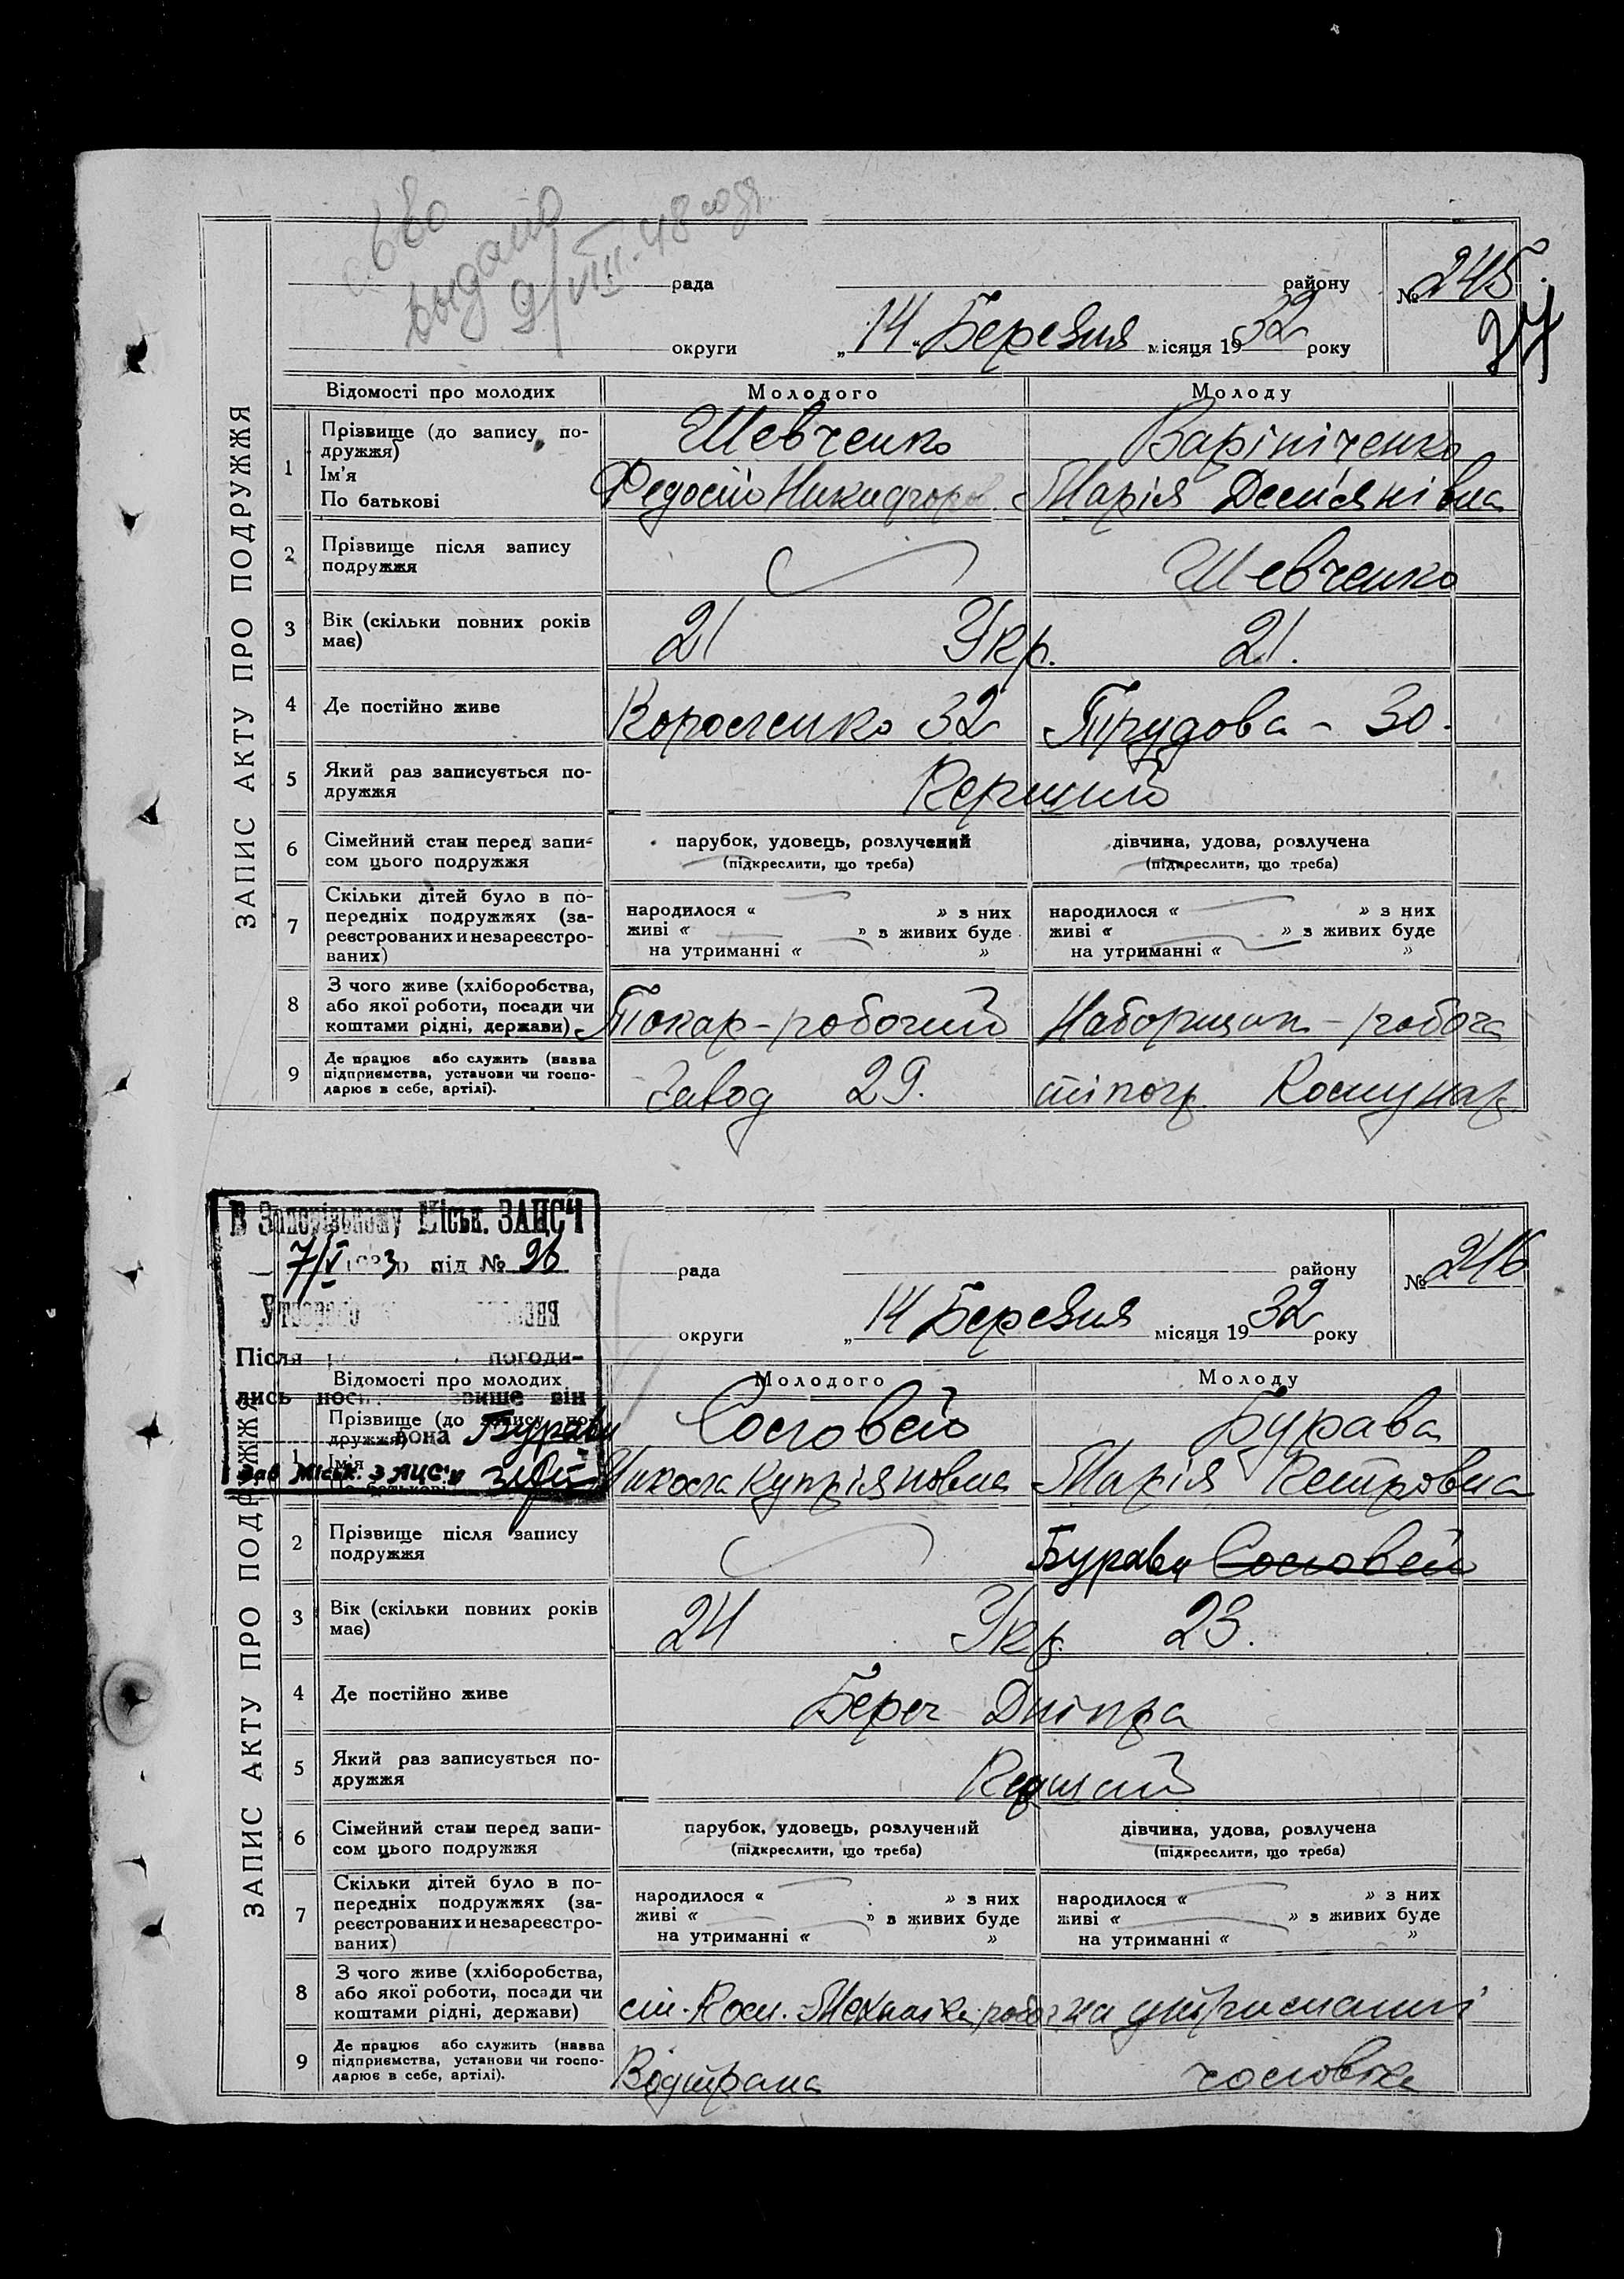 выдано
9/VIII-48 года
рада
району
№ 245
37
округи
„14“ Березня місяця 1932 року
ЗАПИС АКТУ ПРО ПОДРУЖЖЯ
Відомості про молодих
Молодого
Молоду
1
Прізвище (до запису по-
дружжя)
Ім'я
По батькові
Шевченко
Федосій Никифоров.
Марія Демянівна
2
Прізвище після запису
подружжя
Шевченко
3
Вік (скільки повних років
має)
21
Укр.
21.
4
Де постійно живе
Короленко 32
Трудова - 30.
5
Який раз записується по-
дружжя
Перший
6
Сімейний стан перед запи-
сом цього подружжя
парубок, удовець, розлучений
(підкреслити, що треба)
дівчина, удова, розлучена
(підкреслити, що треба)
7
Скільки дітей було в по-
передніх подружжях (за-
реєстрованих и незареєстро-
ваних)
народилося « » з них
живі « » в живих буде
на утриманні « »
народилося « » з них
живі « » з живих буде
на утриманні « »
8
З чого живе (хліборобства,
або якої роботи, посади чи
коштами рідні, держави)
Токар-робочий
Наборщик-робоча
9
Де працює або служить (назва
підприємства, установи чи госпо-
дарює в себе, артілі).
Завод 29.
тіпогр. Комунар
В Запорізькому Міськ. ЗАГСЧ
7/V 1933 р під № 96
Після погоди-
лись носи звище він
вона Бурави
Зав Міськ. ЗАГС'у
рада
району
№ 246
округи
„14 Березня місяця 1932 року
ЗАПИС АКТУ ПРО ПОДРУЖЖЯ
Відомості про молодих
Молодого
Молоду
1
Прізвище (до запису по-
дружжя)
Ім'я
По батькові
Соловей
Бурава
Никола Купріяновна
Марія Петровна
2
Прізвище після запису
подружжя
Бурава Соловей
3
Вік (скільки повних років
має)
24
Укр.
23.
4
Де постійно живе
Берег Дніпра
5
Який раз записується по-
дружжя
Перший
6
Сімейний стан перед запи-
сом цього подружжя
парубок, удовець, розлучений
(підкреслити, що треба)
дівчина, удова, розлучена
(підкреслити, що треба)
7
Скільки дітей було в по-
передніх подружжях (за-
реєстрованих и незареєстро-
ваних)
народилося « » з них
живі « » в живих буде
на утриманні « »
народилося « » з них
живі « » з живих буде
на утриманні « »
8
З чого живе (хліборобства,
або якої роботи, посади чи
коштами рідні, держави)
Механіка
на утриманні
9
Де працює або служить (назва
підприємства, установи чи госпо-
дарює в себе, артілі).
чоловіка